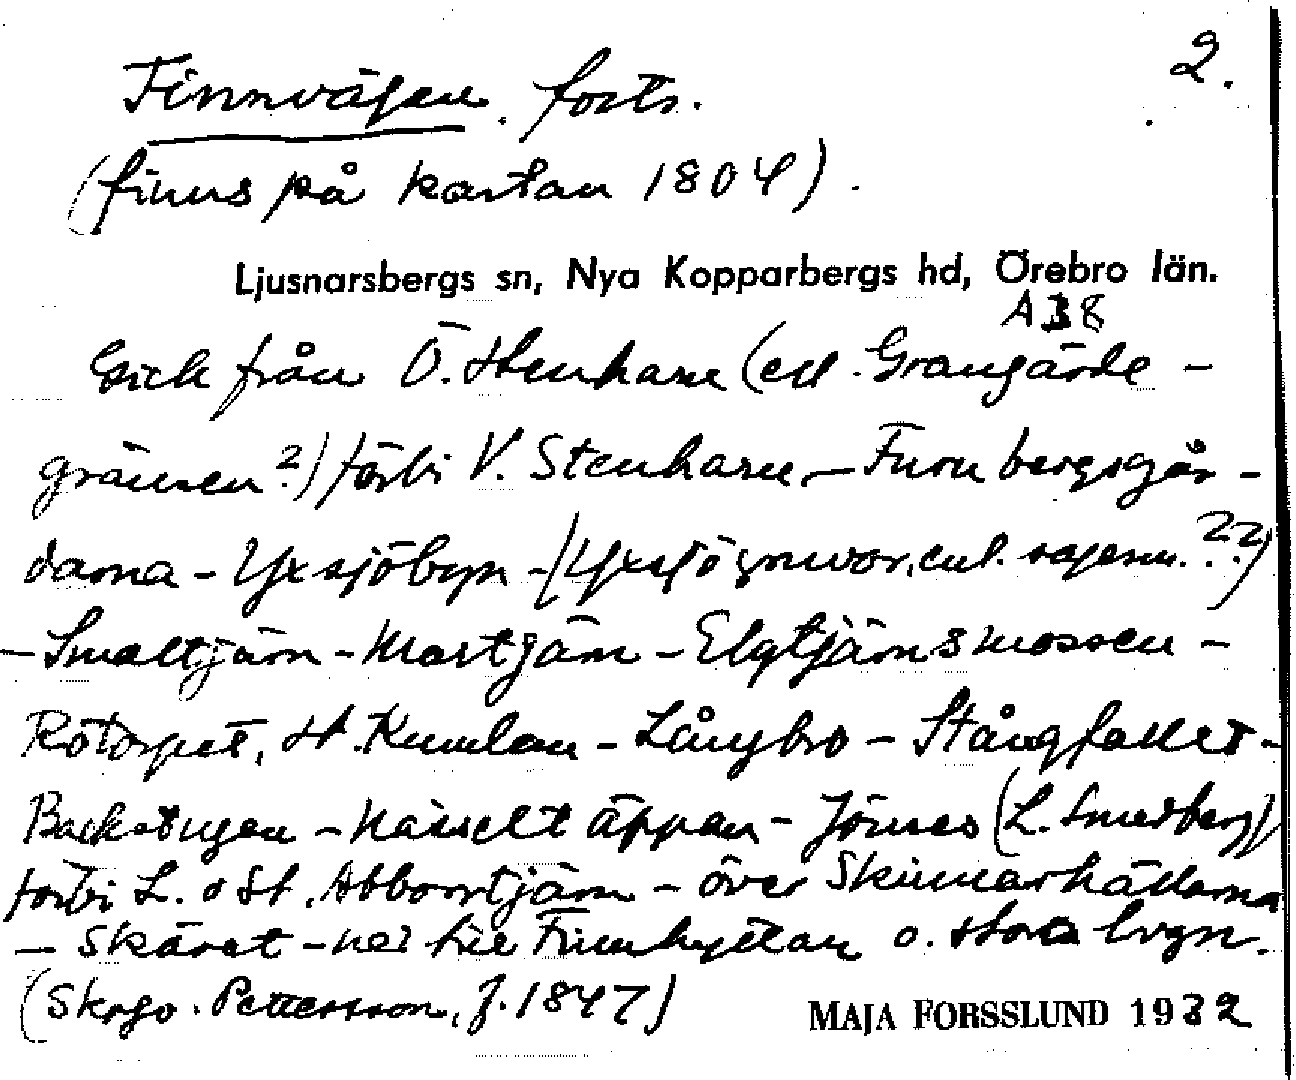 2.
Finnvägen. forts.
(finns på kartan 1804).
Ljusnarsbergs sn, Nya Kopparbergs hd, Örebro län.
A38
Gick från Ö. Stenharen (ell. Grangärde-
gränsen?) förbi V. Stenharen - Finnbergsgår-
darna - Yxsjöbyn - (Yxsjögruvor, enl. sagesm.??)
- Smaltjärn - Martjärn - Elgtjärnsmossen -
Rötorpet, St. Kumlan - Långbro - Stångfallet -
Backstugan - Hässeltäppan - Jönses (L. Smedberg)
förbi L. o St. Abborrtjärn - över Skinnarhällarna
- Skäret - ner till Finnhyttan o. stora byn.
(Skogo. Pettersson, f. 1847)
MAJA FORSSLUND 1932